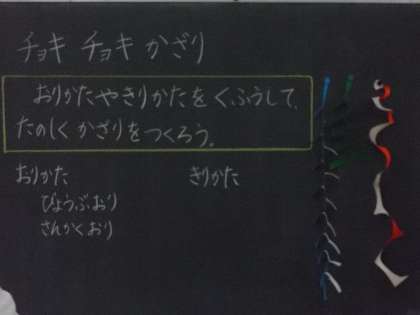 チョキ チョキ かざり
おりかたやきりかたをくふうして、
たのしくかざりをつくろう。
おりかた
びょうぶおり
さんかくおり
きりかた